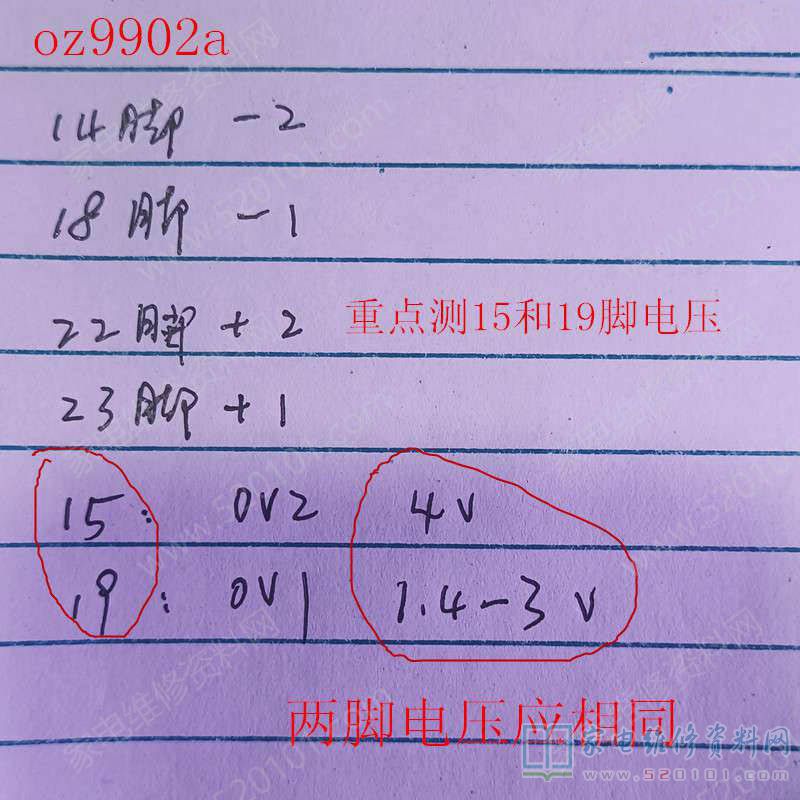 oz9902a
14脚 -2
18脚 -1
22脚 +2 重点测15和19脚电压
23脚 +1
15: OV2 4V
19: OV1 1.4-3V
两脚电压应相同
家电维修资料网
www.520101.com